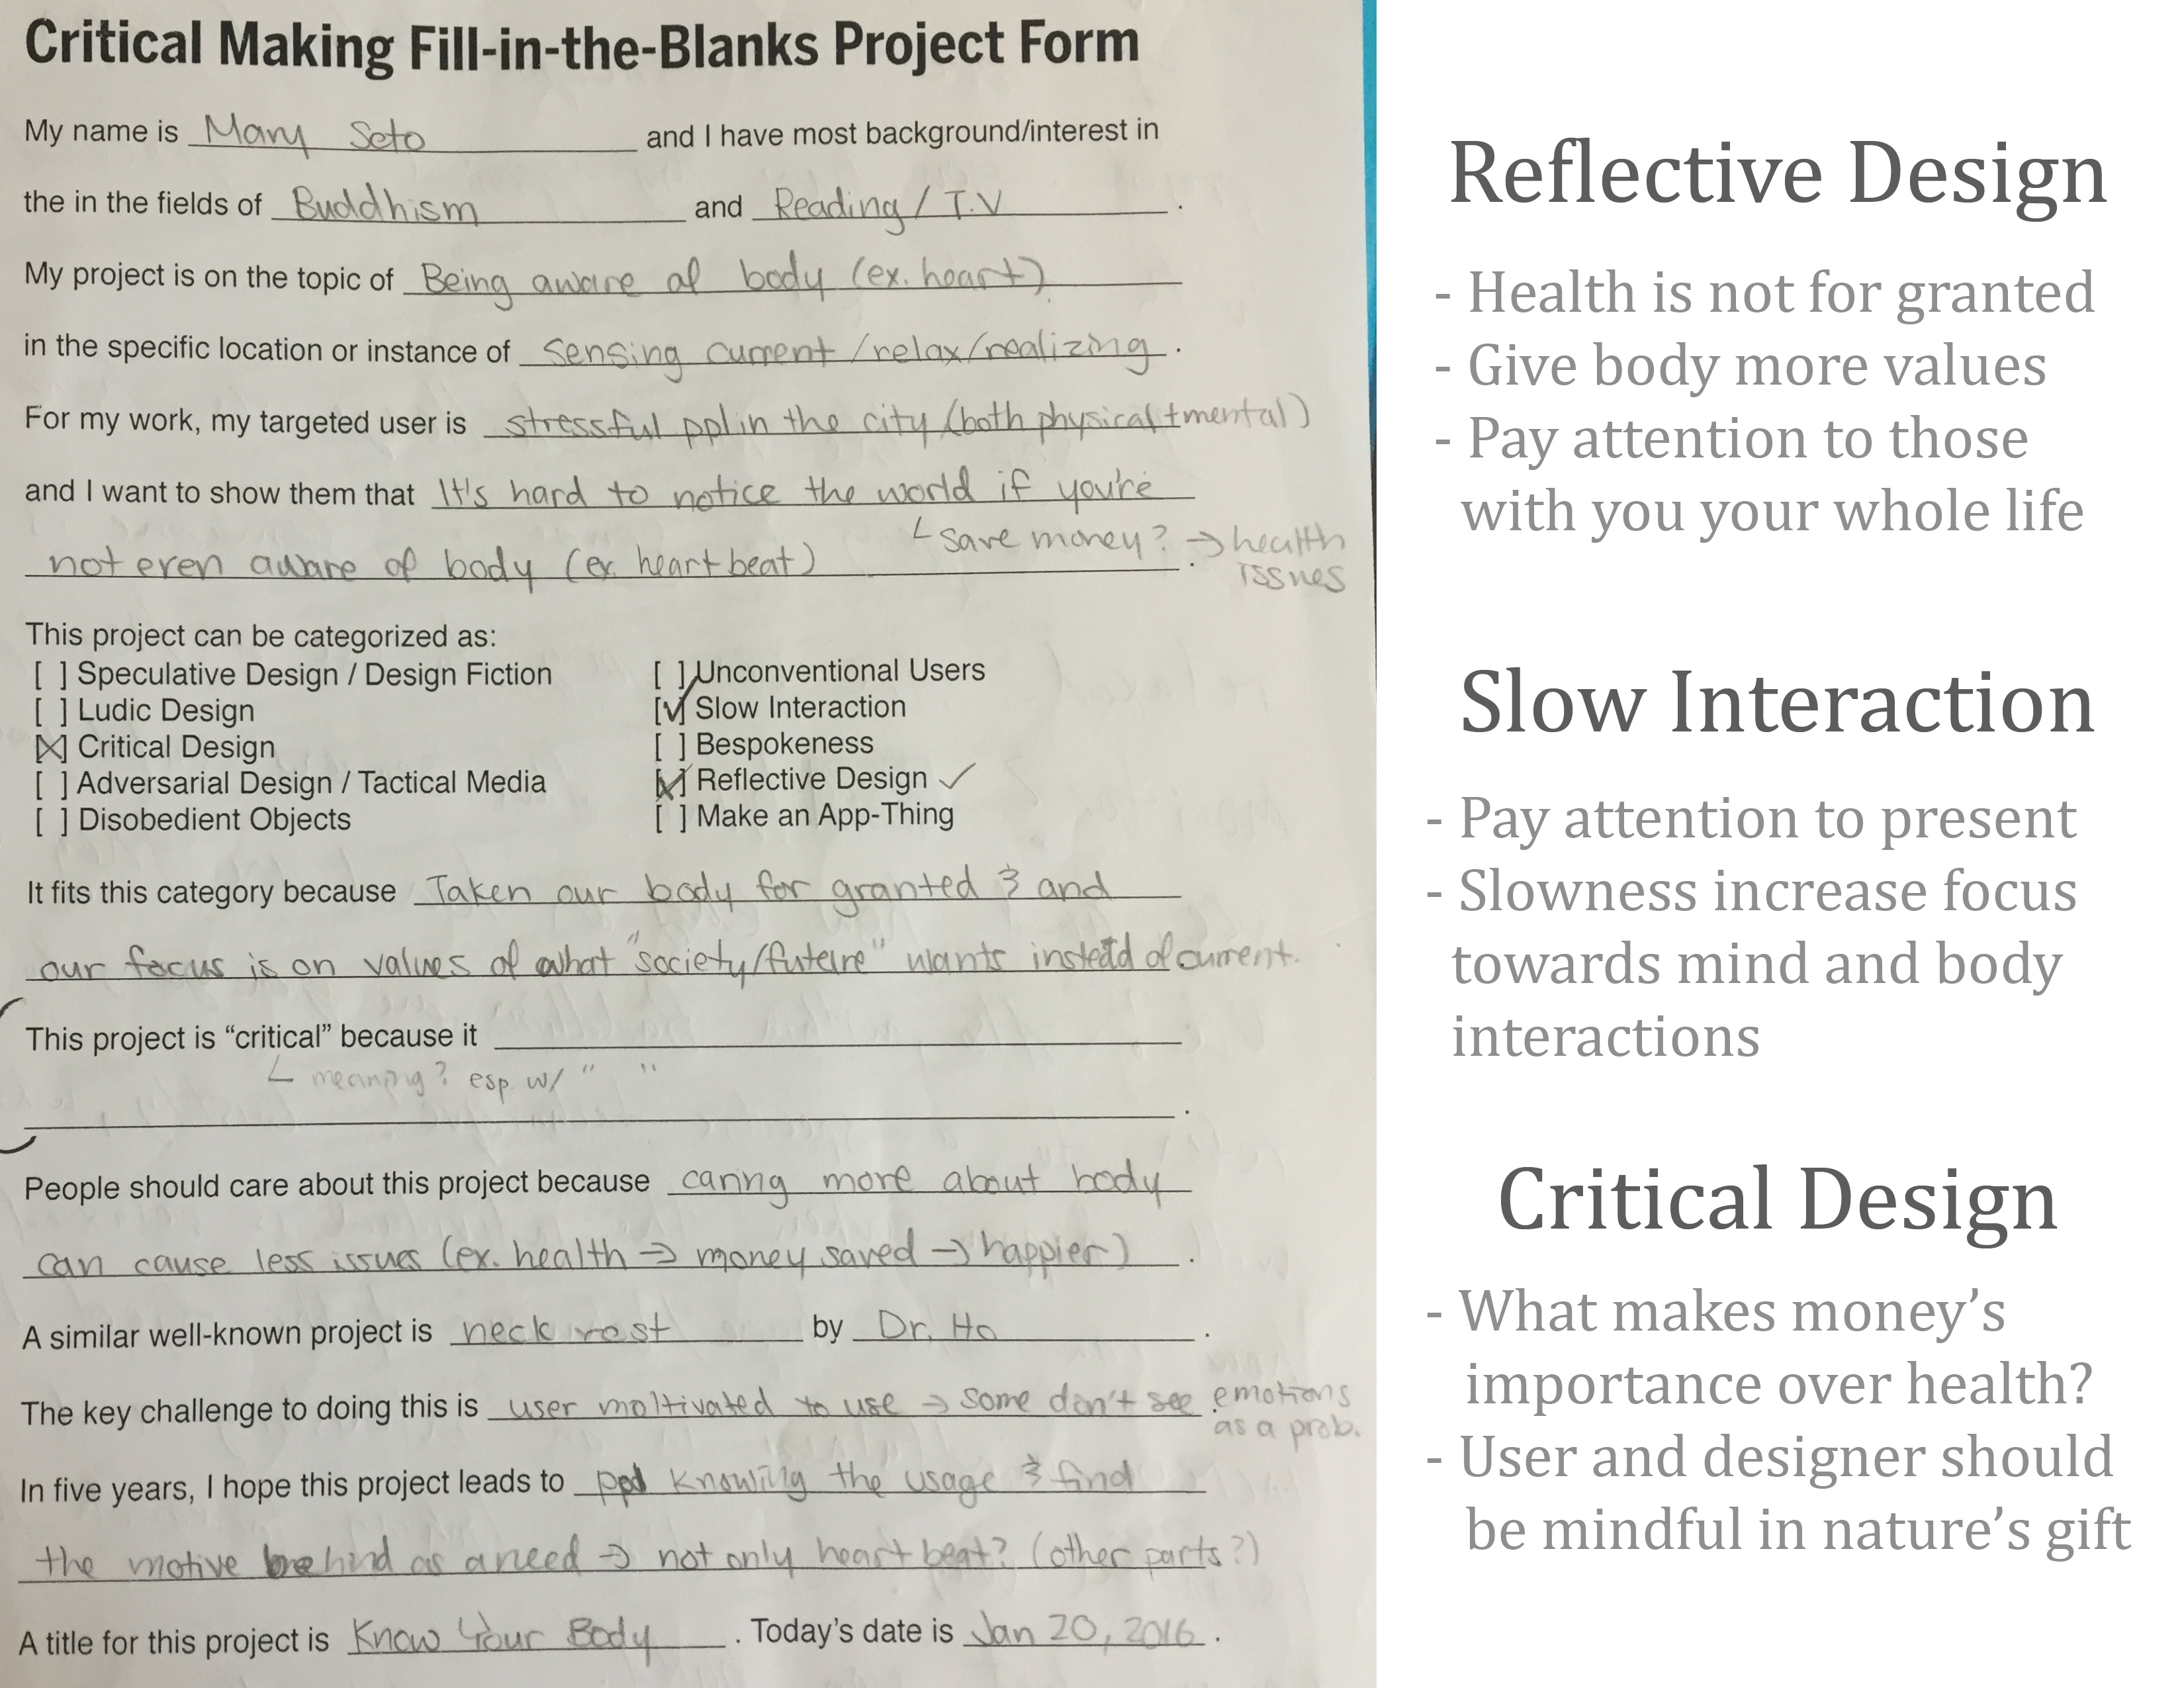 Critical Making Fill-in-the-Blanks Project Form
My name is Mary Seto and I have most background/interest in
the in the fields of Buddhism and Reading / T.V .
My project is on the topic of Being aware of body (ex. heart)
in the specific location or instance of sensing current /relax/realizing .
For my work, my targeted user is stressful ppl in the city (both physical + mental)
and I want to show them that It's hard to notice the world if you're
└ save money? → health
issues
not even aware of body (ex. heart beat) .
This project can be categorized as:
[ ] Speculative Design / Design Fiction
[ ] Ludic Design
[X] Critical Design
[ ] Adversarial Design / Tactical Media
[ ] Disobedient Objects
[ ] Unconventional Users
[✓] Slow Interaction
[ ] Bespokeness
[X] Reflective Design ✓
[ ] Make an App-Thing
It fits this category because Taken our body for granted & and
our focus is on values of what "society/future" wants instead of current.
This project is “critical” because it
└ meaning? esp. w/ " "
.
People should care about this project because caring more about body
can cause less issues (ex. health → money saved → happier) .
A similar well-known project is neck rest by Dr. Ho .
The key challenge to doing this is user moltivated to use → some don't see emotions
as a prob.
In five years, I hope this project leads to ppl knowing the usage & find
the motive behind as a need → not only heart beat? (other parts?)
A title for this project is Know Your Body . Today’s date is Jan 20, 2016 .
Reflective Design
- Health is not for granted
- Give body more values
- Pay attention to those
with you your whole life
Slow Interaction
- Pay attention to present
- Slowness increase focus
towards mind and body
interactions
Critical Design
- What makes money’s
importance over health?
- User and designer should
be mindful in nature’s gift